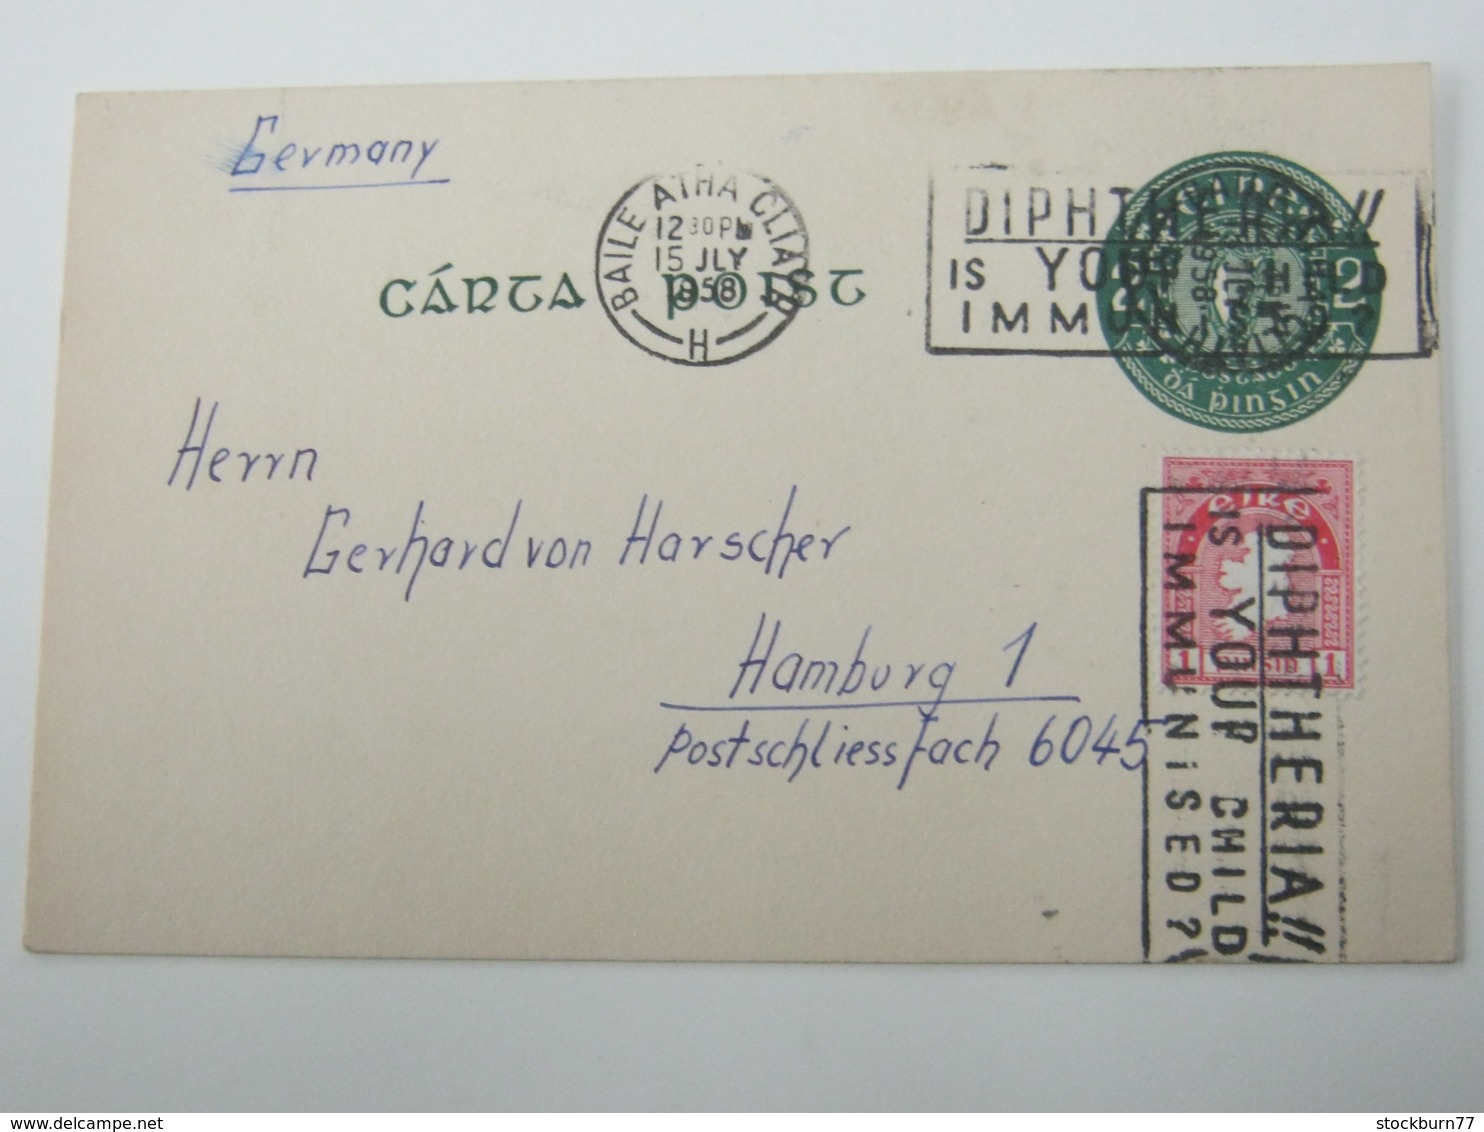 Germany
CÁRTA POIST
BAILE ATHA CLIATH
12 30 PM
15 JLY
1958
H
DIPHTHERIA!!
IS YOUR CHILD
IMMUNISED?
2 2
POSTAGE
DÁ ṖINGIN
Herrn
Gerhard von Harscher
Hamburg 1
Postschliessfach 6045
éire
1 PINSIN 1
DIPHTHERIA!!
IS YOUR CHILD
IMMUNISED?
Delcampe.net
stockburn77